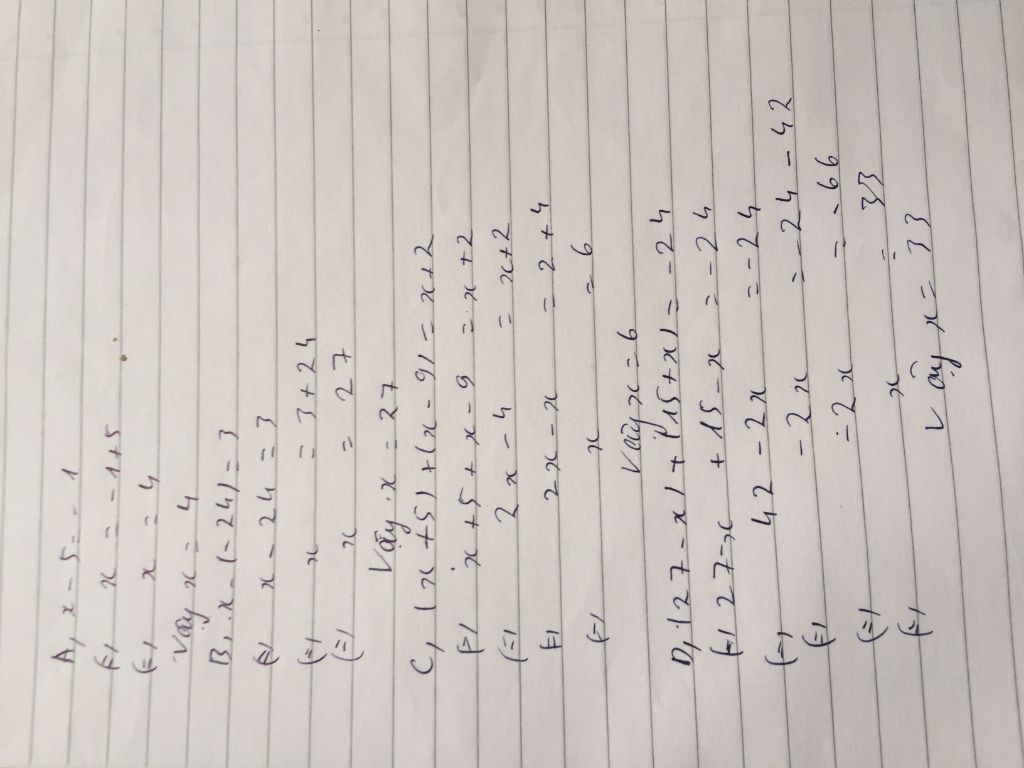 A, x - 5 = - 1
(=) x = - 1 + 5
(=) x = 4
Vậy x = 4
B, x - (- 24) = 3
(=) x - 24 = 3
(=) x = 3 + 24
(=) x = 27
Vậy x = 27
C, (x + 5) + (x - 9) = x + 2
(=) x + 5 + x - 9 = x + 2
(=) 2x - 4 = x + 2
(=) 2x - x = 2 + 4
(=) x = 6
Vậy x = 6
D, (27 - x) + (15 + x) = - 24
(=) 27 - x + 15 - x = - 24
(=) 42 - 2x = - 24
(=) - 2x = - 24 - 42
(=) - 2x = - 66
(=) x = 33
Vậy x = 33